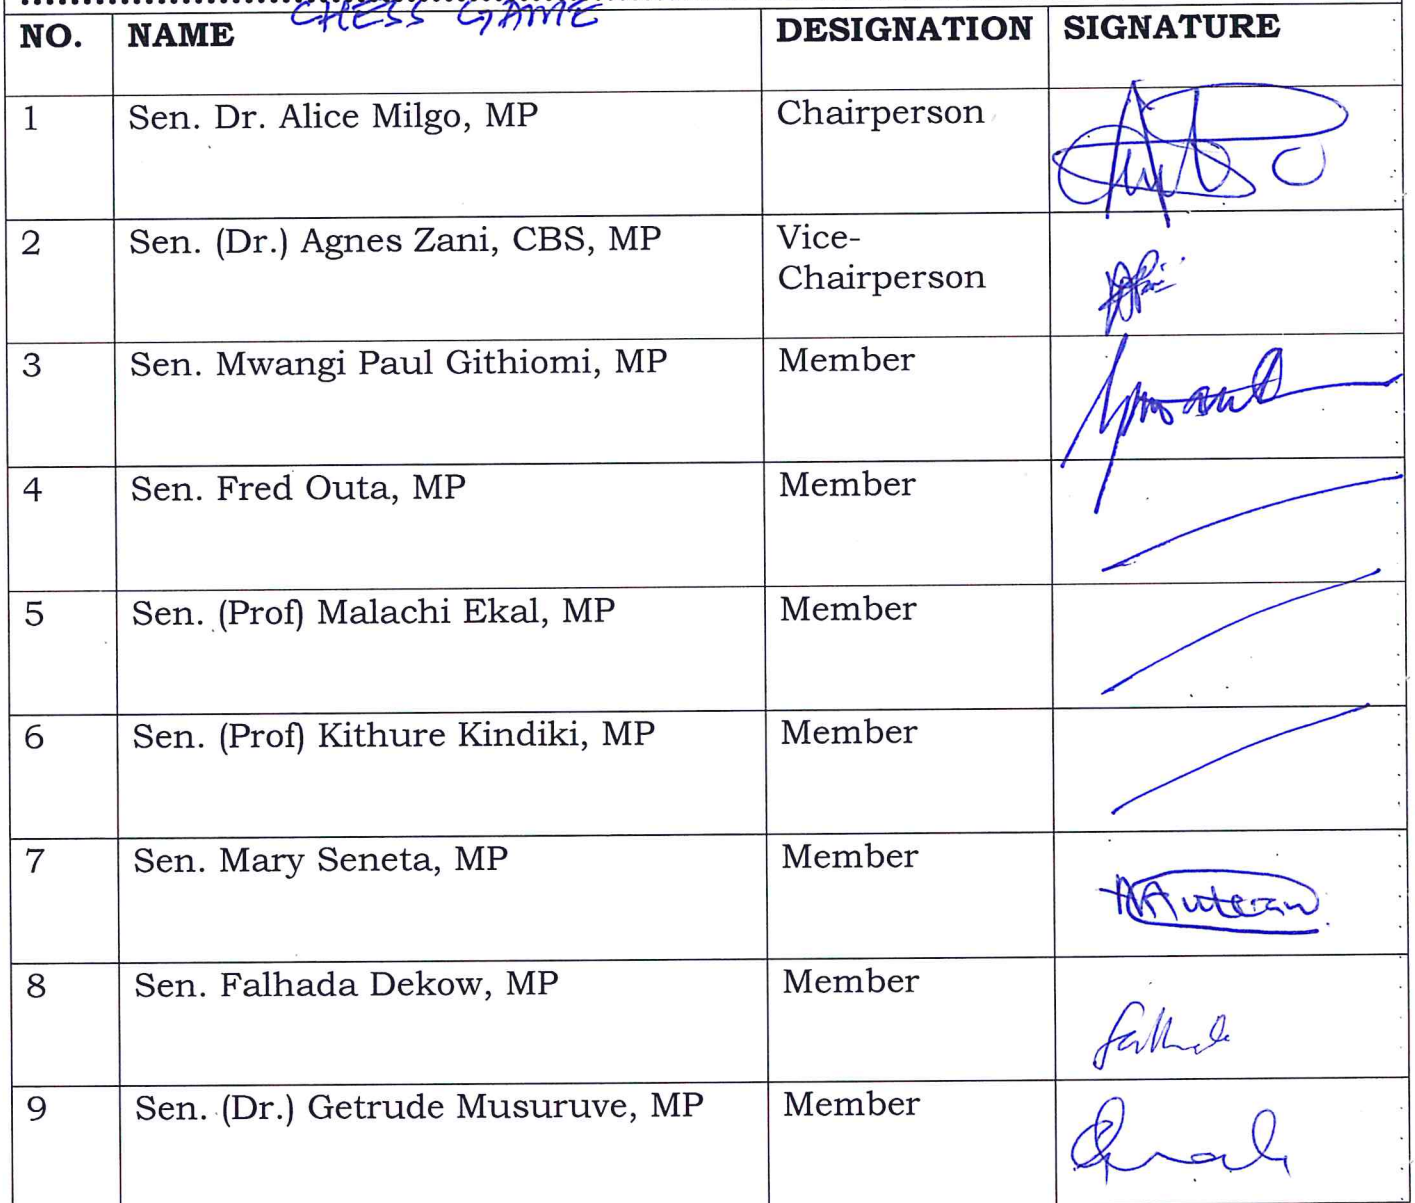 CHESS GAME
NO. NAME DESIGNATION SIGNATURE
1 Sen. Dr. Alice Milgo, MP Chairperson
2 Sen. (Dr.) Agnes Zani, CBS, MP Vice-
Chairperson
3 Sen. Mwangi Paul Githiomi, MP Member
4 Sen. Fred Outa, MP Member
5 Sen. (Prof) Malachi Ekal, MP Member
6 Sen. (Prof) Kithure Kindiki, MP Member
7 Sen. Mary Seneta, MP Member
8 Sen. Falhada Dekow, MP Member
9 Sen. (Dr.) Getrude Musuruve, MP Member